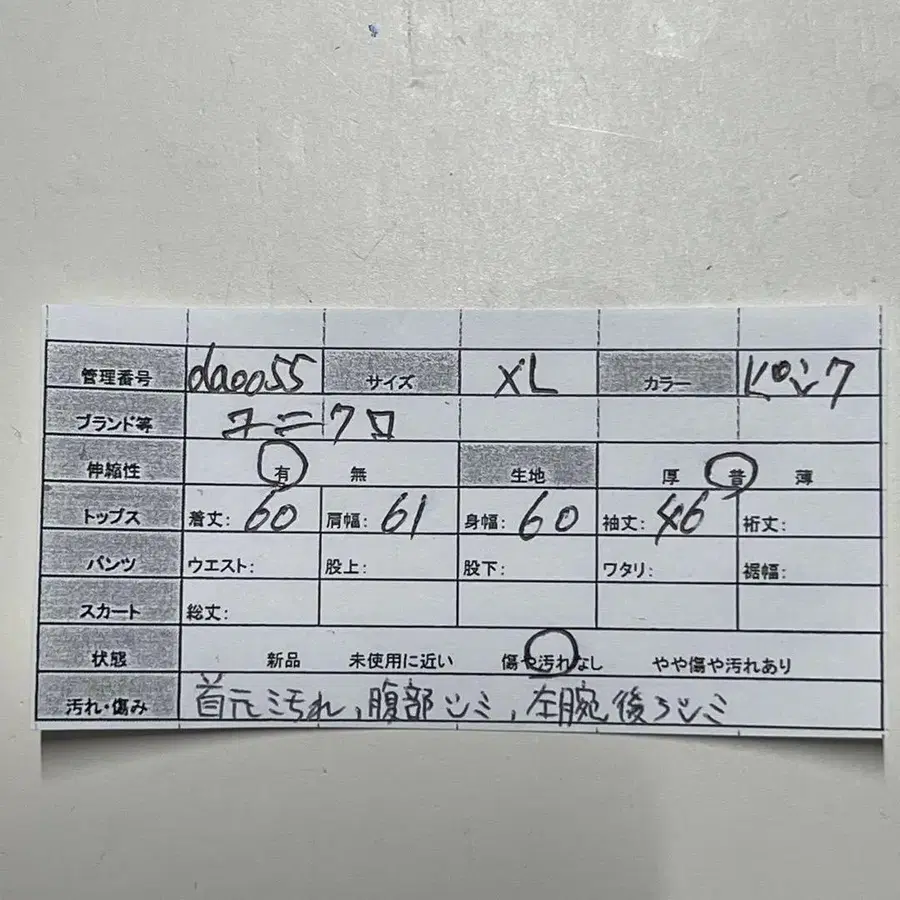 管理番号 da0055 サイズ XL カラー ピンク
ブランド等 ユニクロ
伸縮性 有 無 生地 厚 普 薄
トップス 着丈: 60 肩幅: 61 身幅: 60 袖丈: 46 裄丈:
パンツ ウエスト: 股上: 股下: ワタリ: 裾幅:
スカート 総丈:
状態 新品 未使用に近い 傷や汚れなし やや傷や汚れあり
汚れ・傷み 首元汚れ,腹部シミ,左腕後ろシミ